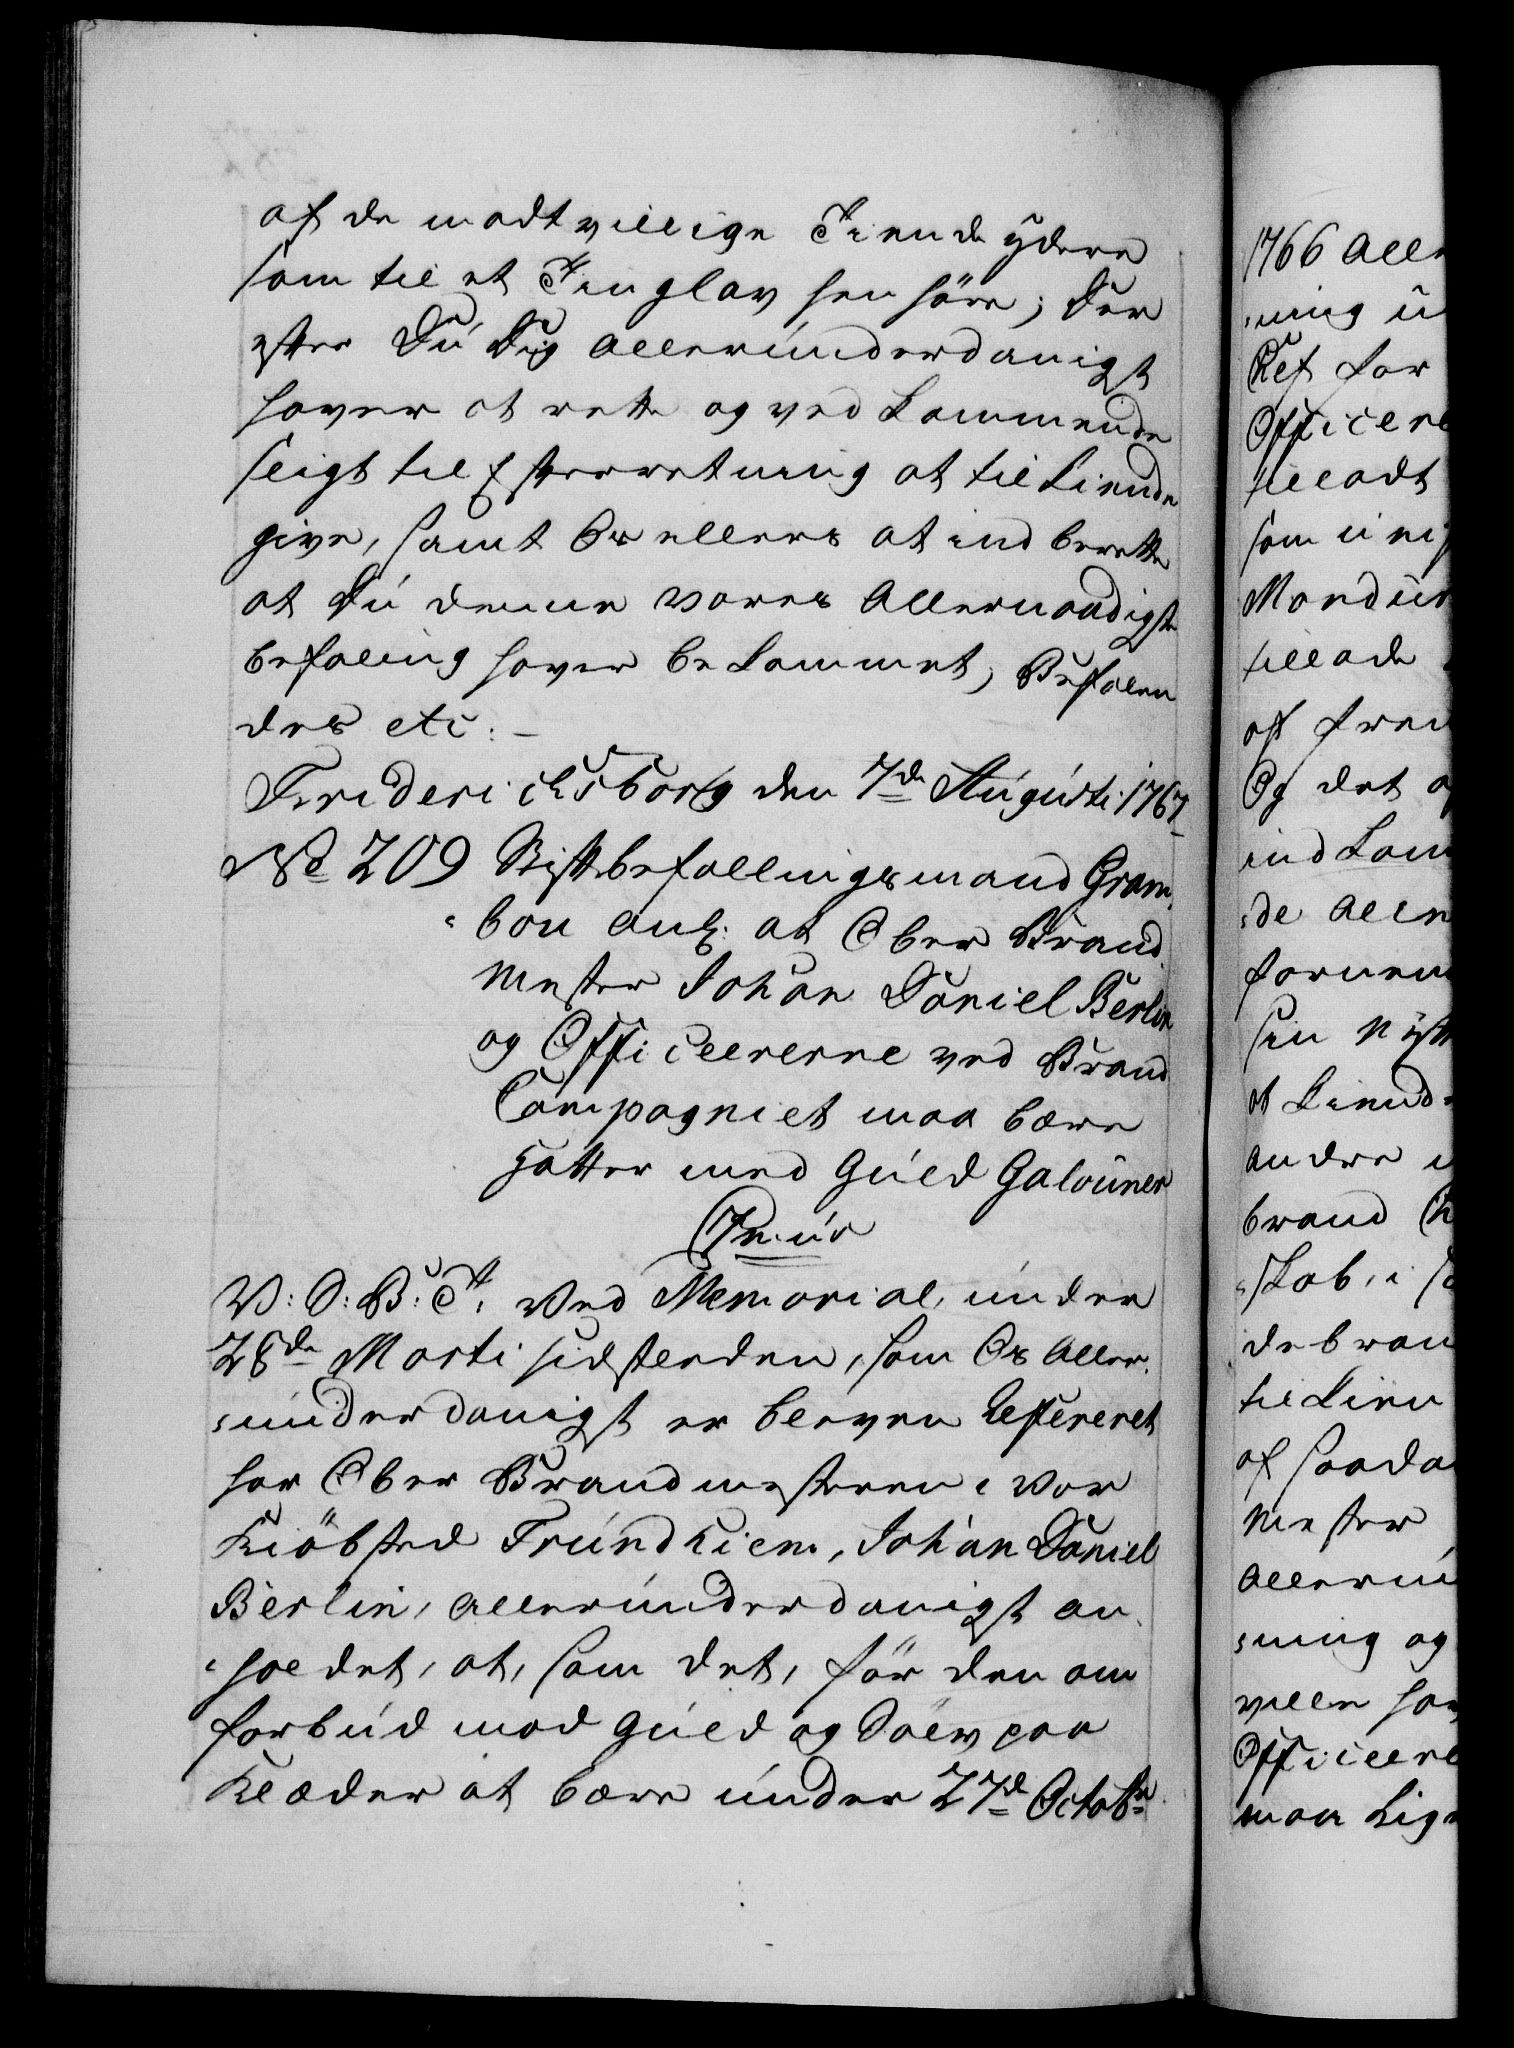 af de modtvillige Tiende ydere
som til et Tinglav henhöre; Der
efter Du Dig allerunderdanigst
haver at rette og vedkommende
sligt til Efterretning at tilkiende
give, samt Os ellers at indberette
at Du denne vores allernaadigste
befaling haver bekommet, Befalen
des etc:
Friderichsborg den 7de Augusti 1767
No 209 Stiftbefallingsmand Gram,
bou anl: at Ober Brand,
mester Johan Daniel Berlin
og Officeererne ved Brand
Compagniet maa bære
Hatter med Guld Galouner
V: S: B: T: Ved Memorial, under
28de Marti sidstleden, som Os aller,
underdanigst er bleven Refereret
har Ober Brandmesteren i vor
Kiöbsted Trundhiem, Johan Daniel
Berlin, allerunderdanigst an,
holdet, at, som det, för den om
forbud mod Guld og Sölv paa
Klæder at bære under 27de Octobr
1766 Aller
ning u
Ref for
Officere
tilladt
som u
Mondur
tillade
af frem
Og det
indkom
de alle
fornem
sin
at kiende
andre
brand
skab, i
de bran
til
af saada
mester
allerun
ning og
ville ha
Officeere
maa lig